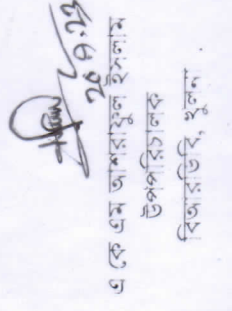 এ কে এম আশরাফুল ইসলাম
উপপরিচালক
বিআরডিবি, খুলনা